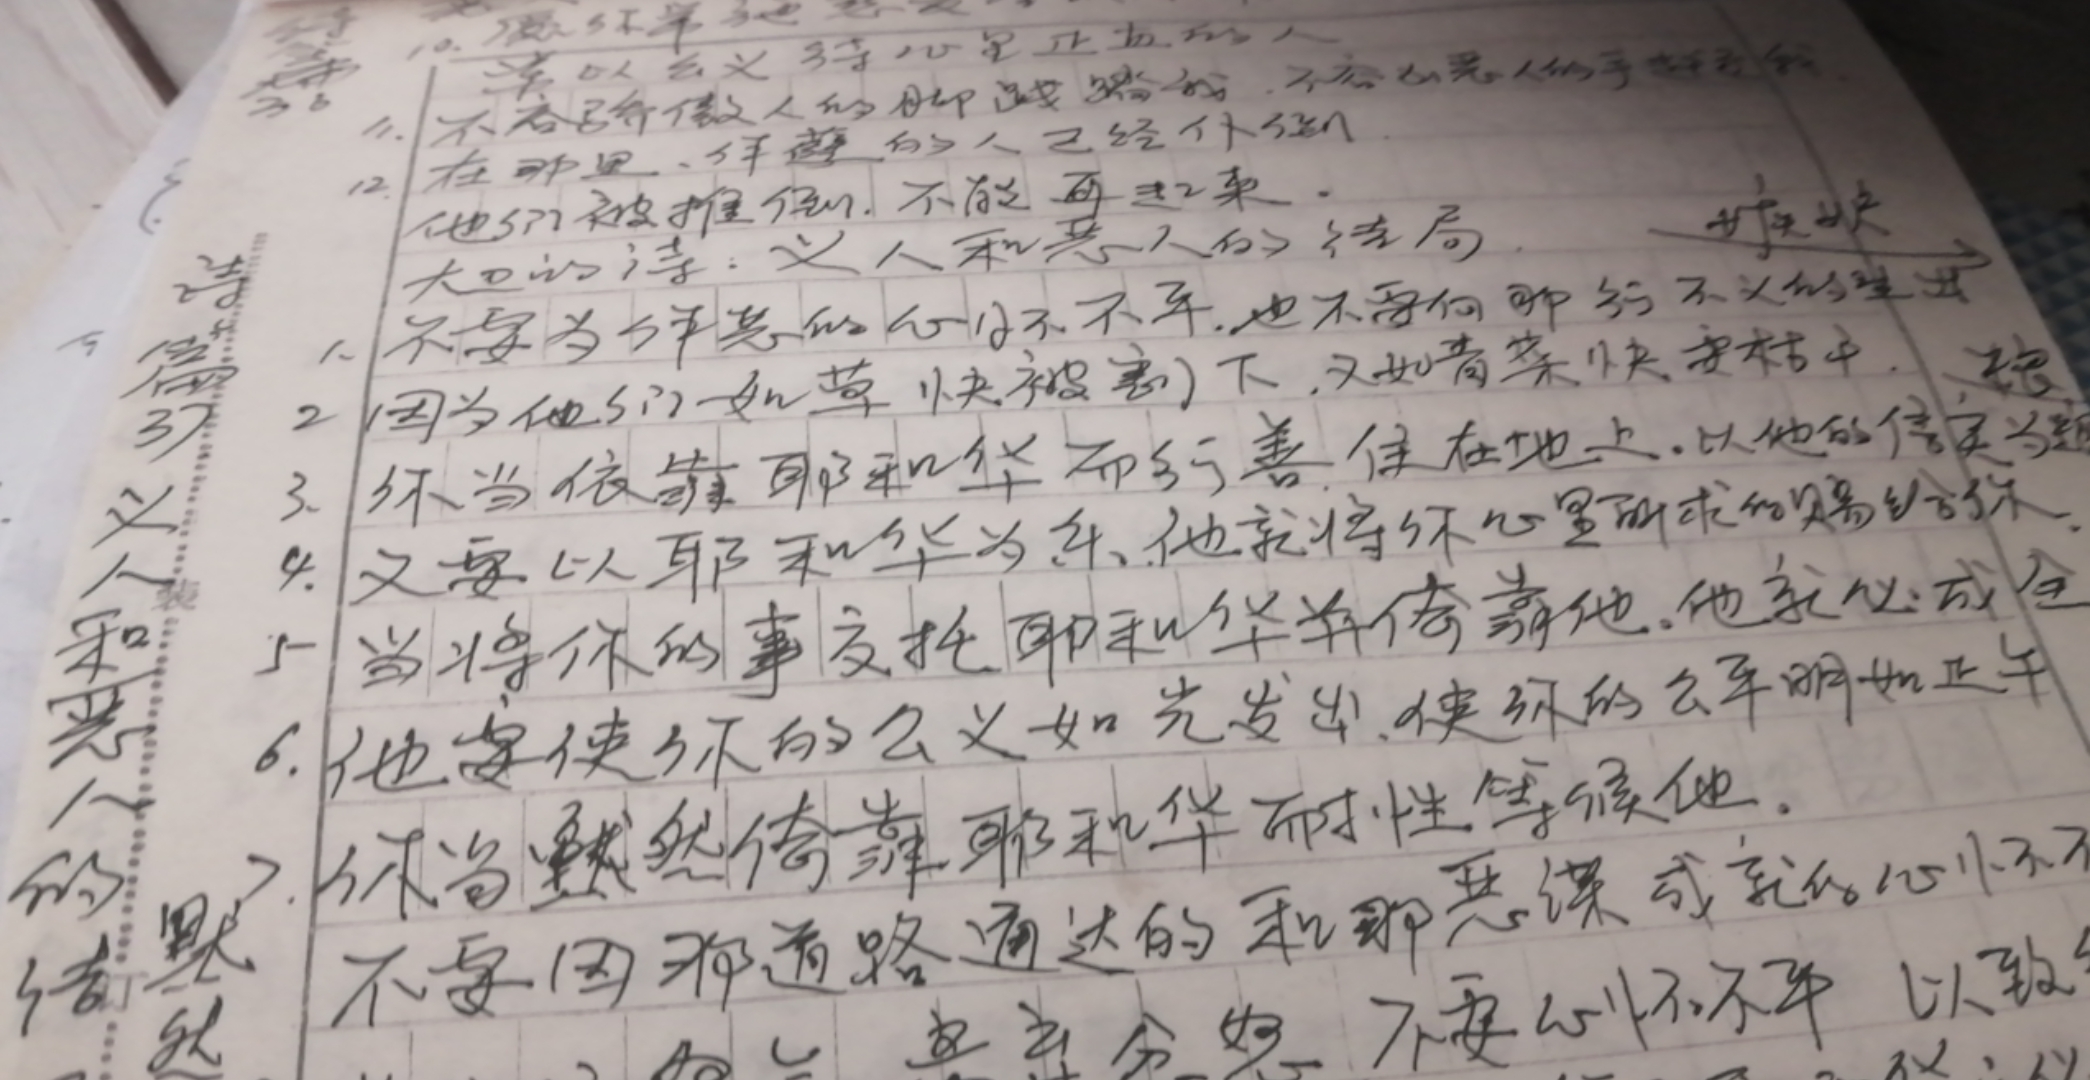 10. 愿你常施慈爱
常以公义待心里正直的人
11. 不容骄傲人的脚践踏我.不容凶恶人的手赶逐我.
12. 在那里、作孽的人已经仆倒.
他们被推倒.不能再起来.
大卫的诗:义人和恶人的结局.
嫉妒
1. 不要为作恶的心怀不平.也不要向那行不义的生出
2 因为他们如草快被割下.又如青菜快要枯干.
3. 你当依靠耶和华而行善.住在地上.以他的信实为
粮
4. 又要以耶和华为乐、他就将你心里所求的赐给你.
5 当将你的事交托耶和华并倚靠他.他就必成全
6. 他要使你的公义如光发出.使你的公平明如正午
7. 你当默然倚靠耶和华耐性等候他.
不要因那道路通达的和那恶谋成就的心怀不
不要心怀不平 以致
诗篇
36
诗篇37 义人和恶人的结
默然
装
订